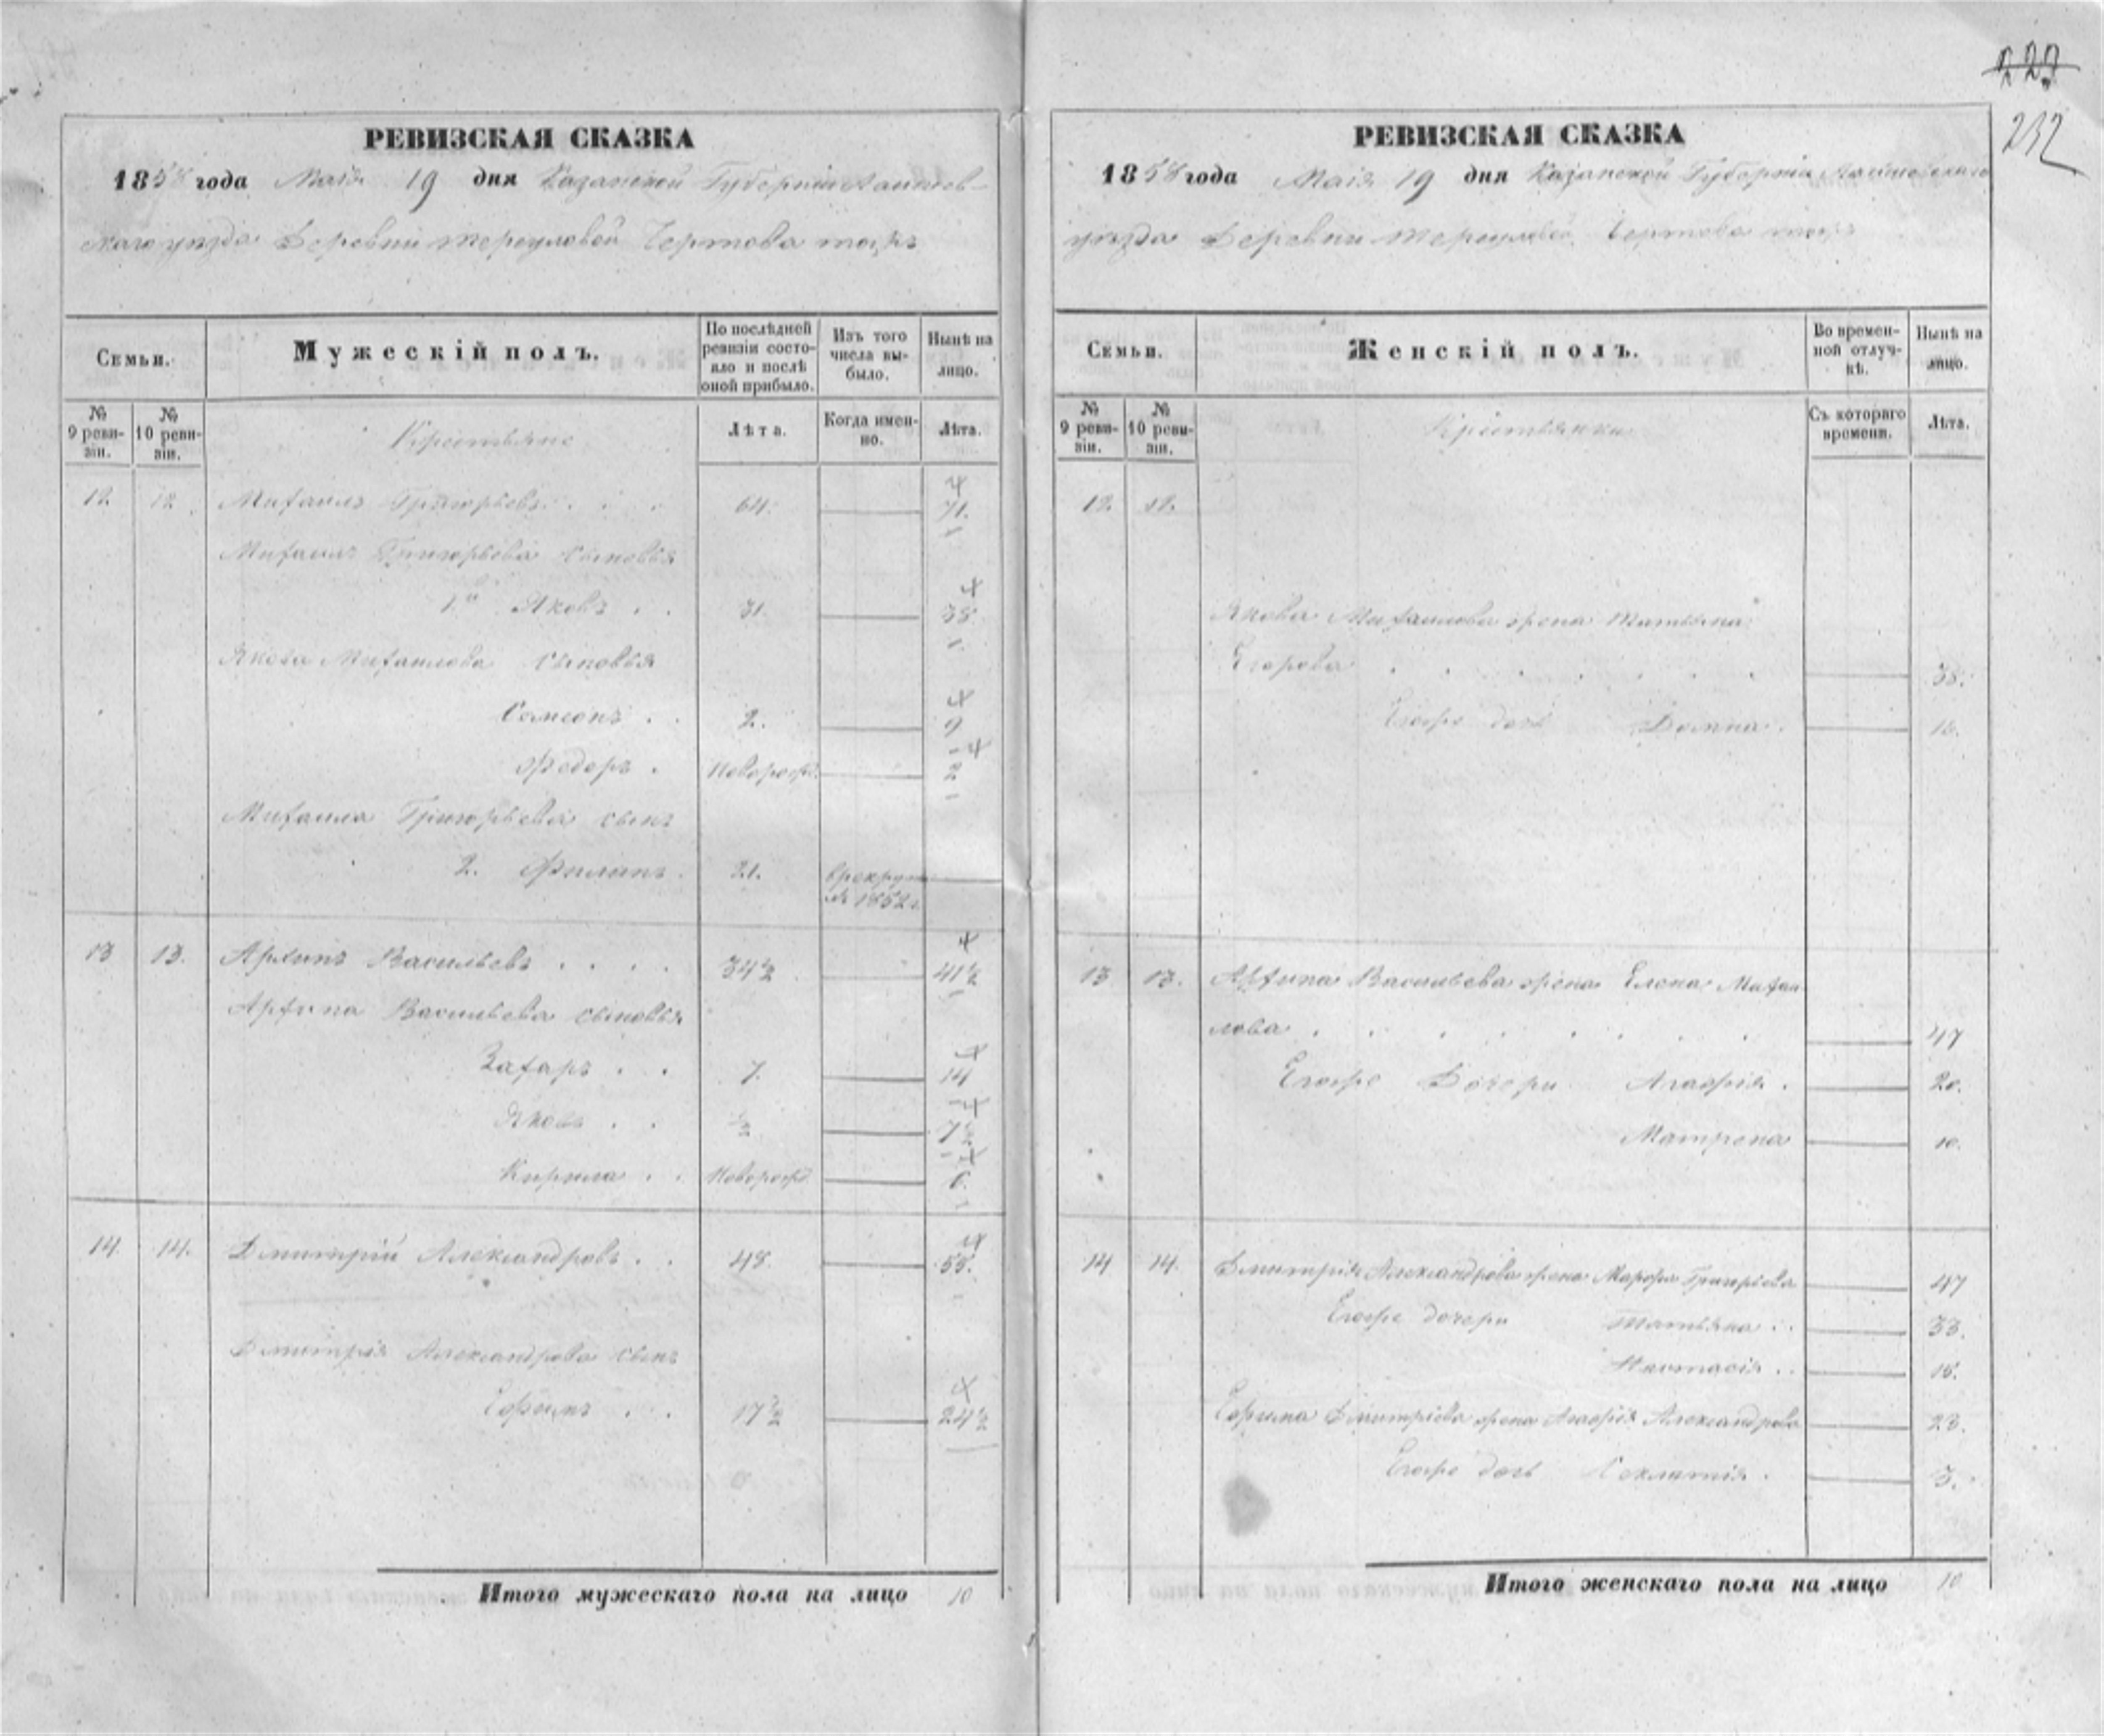 223
232
РЕВИЗСКАЯ СКАЗКА
1858 года Маія 19 дня Казанской Губерніи Лаишев-
скаго уѣзда Деревни Чертова
Семьи.
Мужескій полъ.
По послѣдней ревизіи состо-яло и послѣ оной прибыло.
Изъ того числа вы-было.
Нынѣ на лицо.
№ 9 реви-зіи.
№ 10 реви-зіи.
Крестьяне
Лѣта.
Когда имен-но.
Лѣта.
12 12. Михаилъ Григорьевъ . . . 64. 71.
1
Михаила Григорьева сыновья
1й Яковъ . . 31. 38.
1.
Якова Михаилова сыновья
Самсонъ . . 2. 9
1
Федоръ .Новорожд. 2
1
Михаила Григорьева сынъ
2. Филипъ . 21. в рекрут
1852 г.
13 13. Архипъ Васильевъ . . . . 34½ 41½
1
Архипа Васильева сыновья
Захаръ . . 7. 14
1
Яковъ . . ½ 7½
1
Кирила . . Новорожд. 6.
1
14 14. Дмитрій Александровъ . . 48. 55.
Дмитрія Александрова сынъ
Ефимъ . . 17½ 24½
1
Итого мужескаго пола на лицо 10
РЕВИЗСКАЯ СКАЗКА
1858 года Маія 19 дня Казанской Губерніи Лаишевскаго
уѣзда Деревни Чертова
Семьи.
Женскій полъ.
Во времен-ной отлуч-кѣ.
Нынѣ на лицо.
№ 9 реви-зіи.
№ 10 реви-зіи.
Крестьянки
Съ котораго времени.
Лѣта.
12. 12.
Якова Михаилова жена Татьяна
Егорова . . . . . . . 38.
Егоже дочь Домна .
13 13. Архипа Васильева жена Елена Михаи
лова . . . . . . . 47
Егоже Дочери Агафія . 20.
Матрена 10.
14 14. Дмитрія Александрова жена Марфа Григорьева 47
Егоже дочери Татьяна . . 33.
Настасія . . 18.
Ефима Дмитріева жена Агафія Александрова 23.
Егоже дочь . 3.
Итого женскаго пола на лицо 10